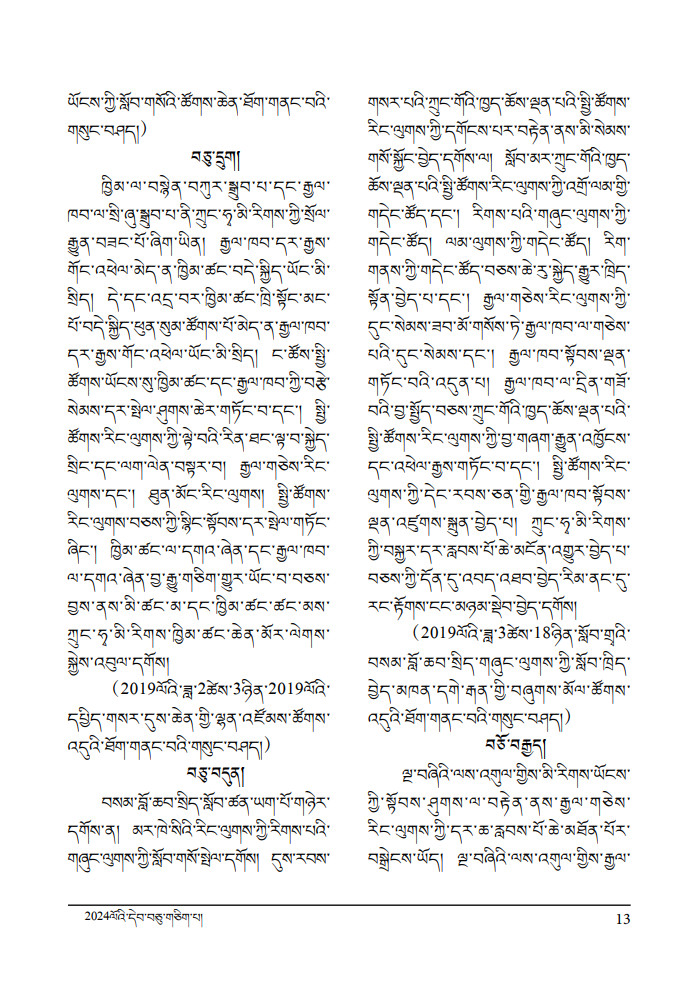 ཡོངས་ཀྱི་སློབ་གསོའི་ཚོགས་ཆེན་ཐོག་གནང་བའི་
གསུང་བཤད།)
བཅུ་དྲུག།
ཁྱིམ་ལ་བསྙེན་བཀུར་སྒྲུབ་པ་དང་རྒྱལ་
ཁབ་ལ་སྲི་ཞུ་སྒྲུབ་པ་ནི་ཀྲུང་ཧྭ་མི་རིགས་ཀྱི་སྲོལ་
རྒྱུན་བཟང་པོ་ཞིག་ཡིན། རྒྱལ་ཁབ་དར་རྒྱས་
གོང་འཕེལ་མེད་ན་ཁྱིམ་ཚང་བདེ་སྐྱིད་ཡོང་མི་
སྲིད། དེ་དང་འདྲ་བར་ཁྱིམ་ཚང་ཁྲི་སྟོང་མང་
པོ་བདེ་སྐྱིད་ཕུན་སུམ་ཚོགས་པོ་མེད་ན་རྒྱལ་ཁབ་
དར་རྒྱས་གོང་འཕེལ་ཡོང་མི་སྲིད། ང་ཚོས་སྤྱི་
ཚོགས་ཡོངས་སུ་ཁྱིམ་ཚང་དང་རྒྱལ་ཁབ་ཀྱི་བརྩེ་
སེམས་དར་སྤེལ་ཤུགས་ཆེར་གཏོང་བ་དང་། སྤྱི་
ཚོགས་རིང་ལུགས་ཀྱི་ལྟེ་བའི་རིན་ཐང་ལྟ་བ་སྐྱེད་
སྲིང་དང་ལག་ལེན་བསྟར་བ། རྒྱལ་གཅེས་རིང་
ལུགས་དང་། ཐུན་མོང་རིང་ལུགས། སྤྱི་ཚོགས་
རིང་ལུགས་བཅས་ཀྱི་སྙིང་སྟོབས་དར་སྤེལ་གཏོང་
ཞིང་། ཁྱིམ་ཚང་ལ་དགའ་ཞེན་དང་རྒྱལ་ཁབ་
ལ་དགའ་ཞེན་བྱ་རྒྱུ་གཅིག་གྱུར་ཡོང་བ་བཅས་
བྱས་ནས་མི་ཚང་མ་དང་ཁྱིམ་ཚང་ཚང་མས་
ཀྲུང་ཧྭ་མི་རིགས་ཁྱིམ་ཚང་ཆེན་མོར་ལེགས་
སྐྱེས་འབུལ་དགོས།
(2019ལོའི་ཟླ་2ཚེས་3ཉིན་2019ལོའི་
དཔྱིད་གསར་དུས་ཆེན་གྱི་ལྷན་འཛོམས་ཚོགས་
འདུའི་ཐོག་གནང་བའི་གསུང་བཤད།)
བཅུ་བདུན།
བསམ་བློ་ཆབ་སྲིད་སློབ་ཚན་ཡག་པོ་གཉེར་
དགོས་ན། མར་ཁེ་སིའི་རིང་ལུགས་ཀྱི་རིགས་པའི་
གཞུང་ལུགས་ཀྱི་སློབ་གསོ་སྤེལ་དགོས། དུས་རབས་
གསར་པའི་ཀྲུང་གོའི་ཁྱད་ཆོས་ལྡན་པའི་སྤྱི་ཚོགས་
རིང་ལུགས་ཀྱི་དགོངས་པར་བརྟེན་ནས་མི་སེམས་
གསོ་སྐྱོང་བྱེད་དགོས་ལ། སློབ་མར་ཀྲུང་གོའི་ཁྱད་
ཆོས་ལྡན་པའི་སྤྱི་ཚོགས་རིང་ལུགས་ཀྱི་འགྲོ་ལམ་གྱི་
གདེང་ཚོད་དང་། རིགས་པའི་གཞུང་ལུགས་ཀྱི་
གདེང་ཚོད། ལམ་ལུགས་ཀྱི་གདེང་ཚོད། རིག་
གནས་ཀྱི་གདེང་ཚོད་བཅས་ཆེ་རུ་སྐྱེད་རྒྱུར་ཁྲིད་
སྟོན་བྱེད་པ་དང་། རྒྱལ་གཅེས་རིང་ལུགས་ཀྱི་
དུང་སེམས་ཟབ་མོ་གསོས་ཏེ་རྒྱལ་ཁབ་ལ་གཅེས་
པའི་དུང་སེམས་དང་། རྒྱལ་ཁབ་སྟོབས་ལྡན་
གཏོང་བའི་འདུན་པ། རྒྱལ་ཁབ་ལ་དྲིན་གཟོ་
བའི་བྱ་སྤྱོད་བཅས་ཀྲུང་གོའི་ཁྱད་ཆོས་ལྡན་པའི་
སྤྱི་ཚོགས་རིང་ལུགས་ཀྱི་བྱ་གཞག་རྒྱུན་འཁྱོངས་
དང་འཕེལ་རྒྱས་གཏོང་བ་དང་། སྤྱི་ཚོགས་རིང་
ལུགས་ཀྱི་དེང་རབས་ཅན་གྱི་རྒྱལ་ཁབ་སྟོབས་
ལྡན་འཛུགས་སྐྲུན་བྱེད་པ། ཀྲུང་ཧྭ་མི་རིགས་
ཀྱི་བསྐྱར་དར་རླབས་པོ་ཆེ་མངོན་འགྱུར་བྱེད་པ་
བཅས་ཀྱི་དོན་དུ་འབད་འཐབ་བྱེད་རིམ་ནང་དུ་
རང་རྟོགས་ངང་མཉམ་སྡེབ་བྱེད་དགོས།
(2019ལོའི་ཟླ་3ཚེས་18ཉིན་སློབ་གྲྭའི་
བསམ་བློ་ཆབ་སྲིད་གཞུང་ལུགས་ཀྱི་སློབ་ཁྲིད་
བྱེད་མཁན་དགེ་རྒན་གྱི་བཞུགས་མོལ་ཚོགས་
འདུའི་ཐོག་གནང་བའི་གསུང་བཤད།)
བཅོ་བརྒྱད།
ལྔ་བཞིའི་ལས་འགུལ་གྱིས་མི་རིགས་ཡོངས་
ཀྱི་སྟོབས་ཤུགས་ལ་བརྟེན་ནས་རྒྱལ་གཅེས་
རིང་ལུགས་ཀྱི་དར་ཆ་རླབས་པོ་ཆེ་མཐོན་པོར་
བསྒྲེངས་ཡོད། ལྔ་བཞིའི་ལས་འགུལ་གྱིས་རྒྱལ་
2024ལོའི་དེབ་བཅུ་གཅིག་པ།
13